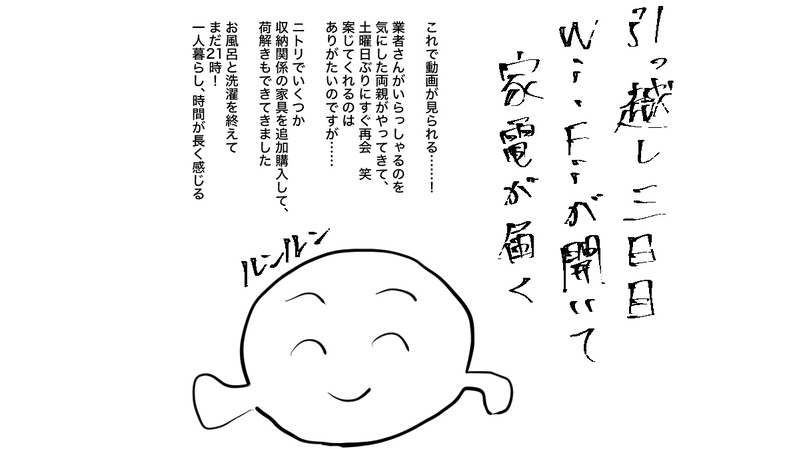 引っ越し三日目
Wi-Fiが開いて
家電が届く
これで動画が見られる……！
業者さんがいらっしゃるのを
気にした両親がやってきて、
土曜日ぶりにすぐ再会　笑
案じてくれるのは
ありがたいのですが……
ニトリでいくつか
収納関係の家具を追加購入して、
荷解きもできてきました
お風呂と洗濯を終えて
まだ21時！
一人暮らし、時間が長く感じる
ルンルン